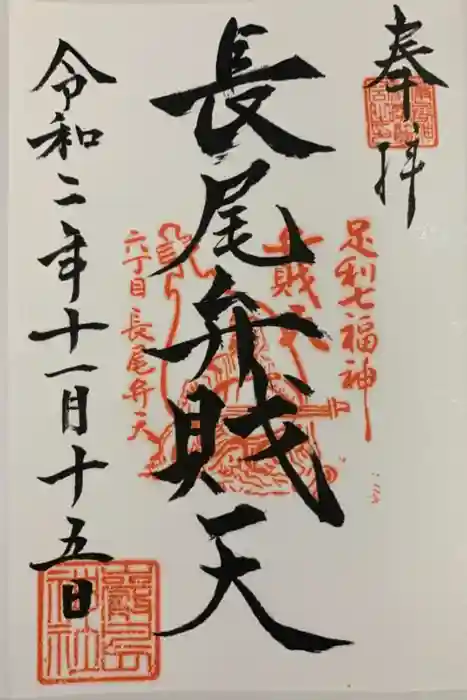 奉拝
足利七福神
弁財天
長尾弁財天
六丁目 長尾弁天
令和二年十一月十五日
嚴島神社